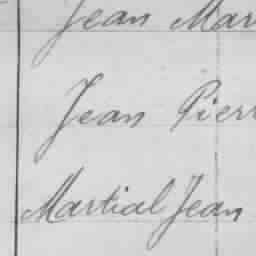 Jean Mar
Jean Pierr
Martial Jean